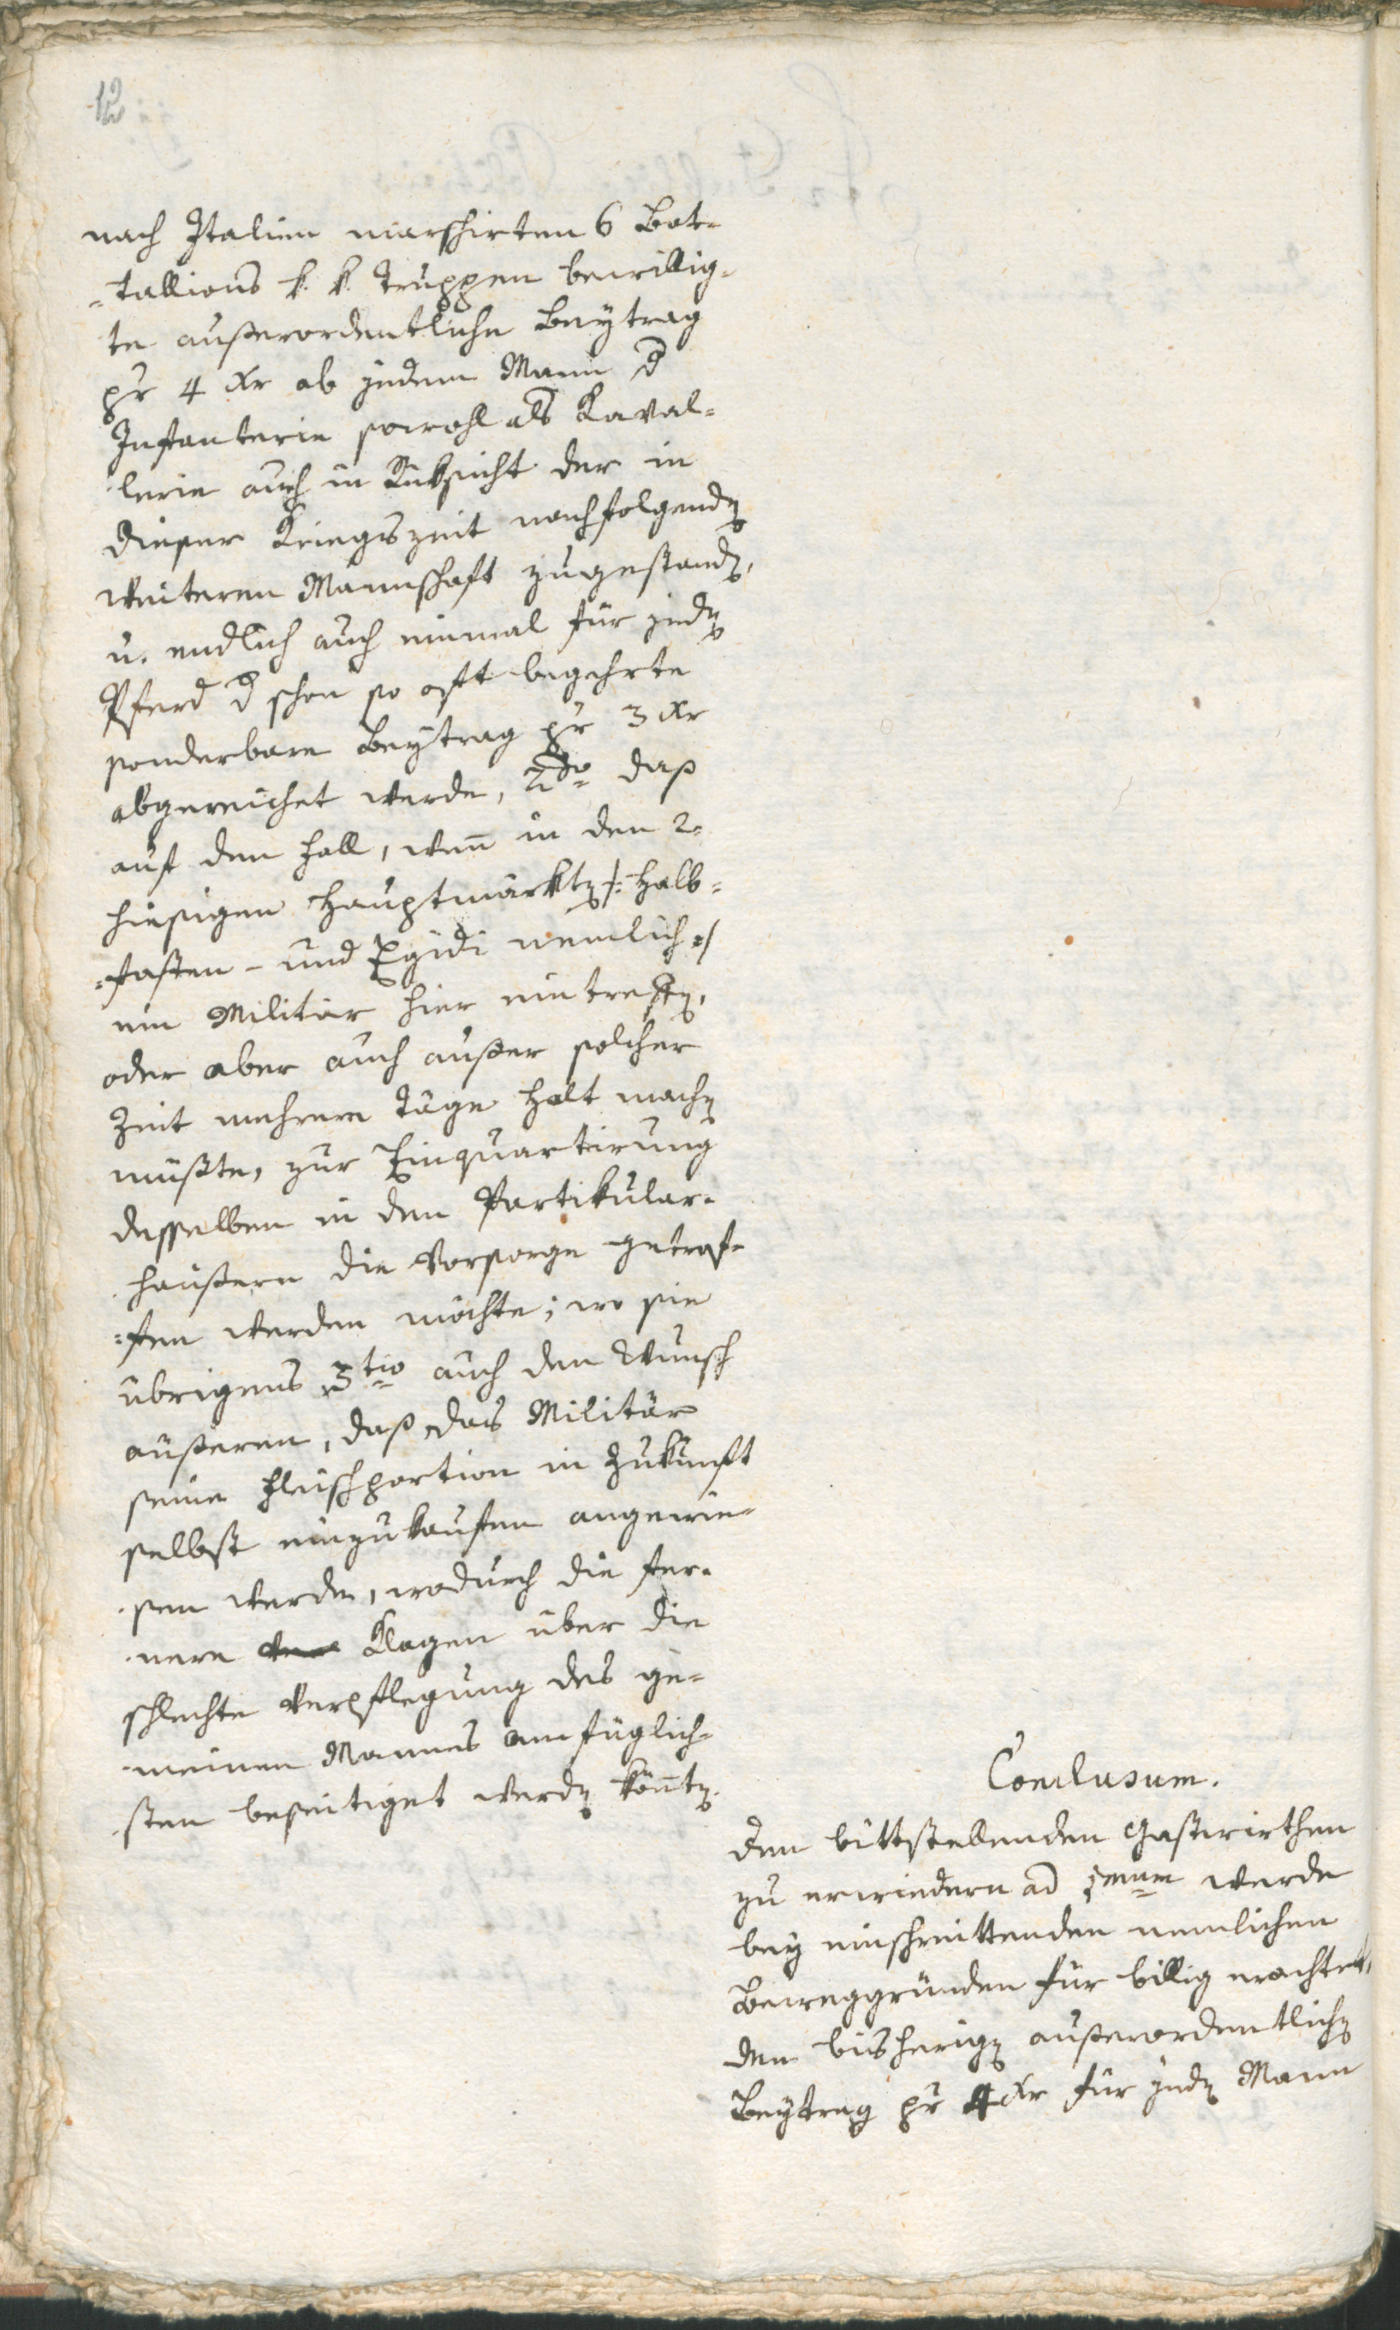 12
nach Italien marschirten 6 Bat-
-tallions k. k. Truppen bewillig-
te außerordentliche Beytrag
pr 4 Xr ab jedem Mann d
Infanterie sowohl als Kaval-
lerie auch in Rüksicht der in
dieser Kriegszeit nachfolgenden
weiteren Mannschaft zugestanden,
u. endlich auch einmal für jedes
Pferd d schon so oft begehrte
sonderbare Beytrag pr 3 Xr
abgereichet werde, 2do daß
auf den Fall, wenn in den 2
hiesigen Hauptmärkten /: Halb-
-fasten- und Egidi nemlich :/
ein Militär hier eintreffen,
oder aber auch außer solcher
Zeit mehrere Täge Halt machen
müßte, zur Einquartirung
desselben in den Partikular-
häußern die Vorsorge getrof-
-fen werden möchte; wo sie
übrigens 3tio auch den Wunsch
äußeren, daß das Militär
seine Fleischportion in Zukunft
selbst einzukaufen angewie-
sen werde, wodurch die fer-
nere Klagen über die
schlechte Verpflegung des ge-
meinen Mannes am füglich-
sten beseitiget werden könnten.
Conclusum.
Den bittstellenden Gastwirthen
zu erwiedern ad 1mum werde
bey einschreittenden nemlichen
Beweggründen für billig erachtet,
den bisherigen außerordentlichen
Beytrag pr 4 Xr für jeden Mann